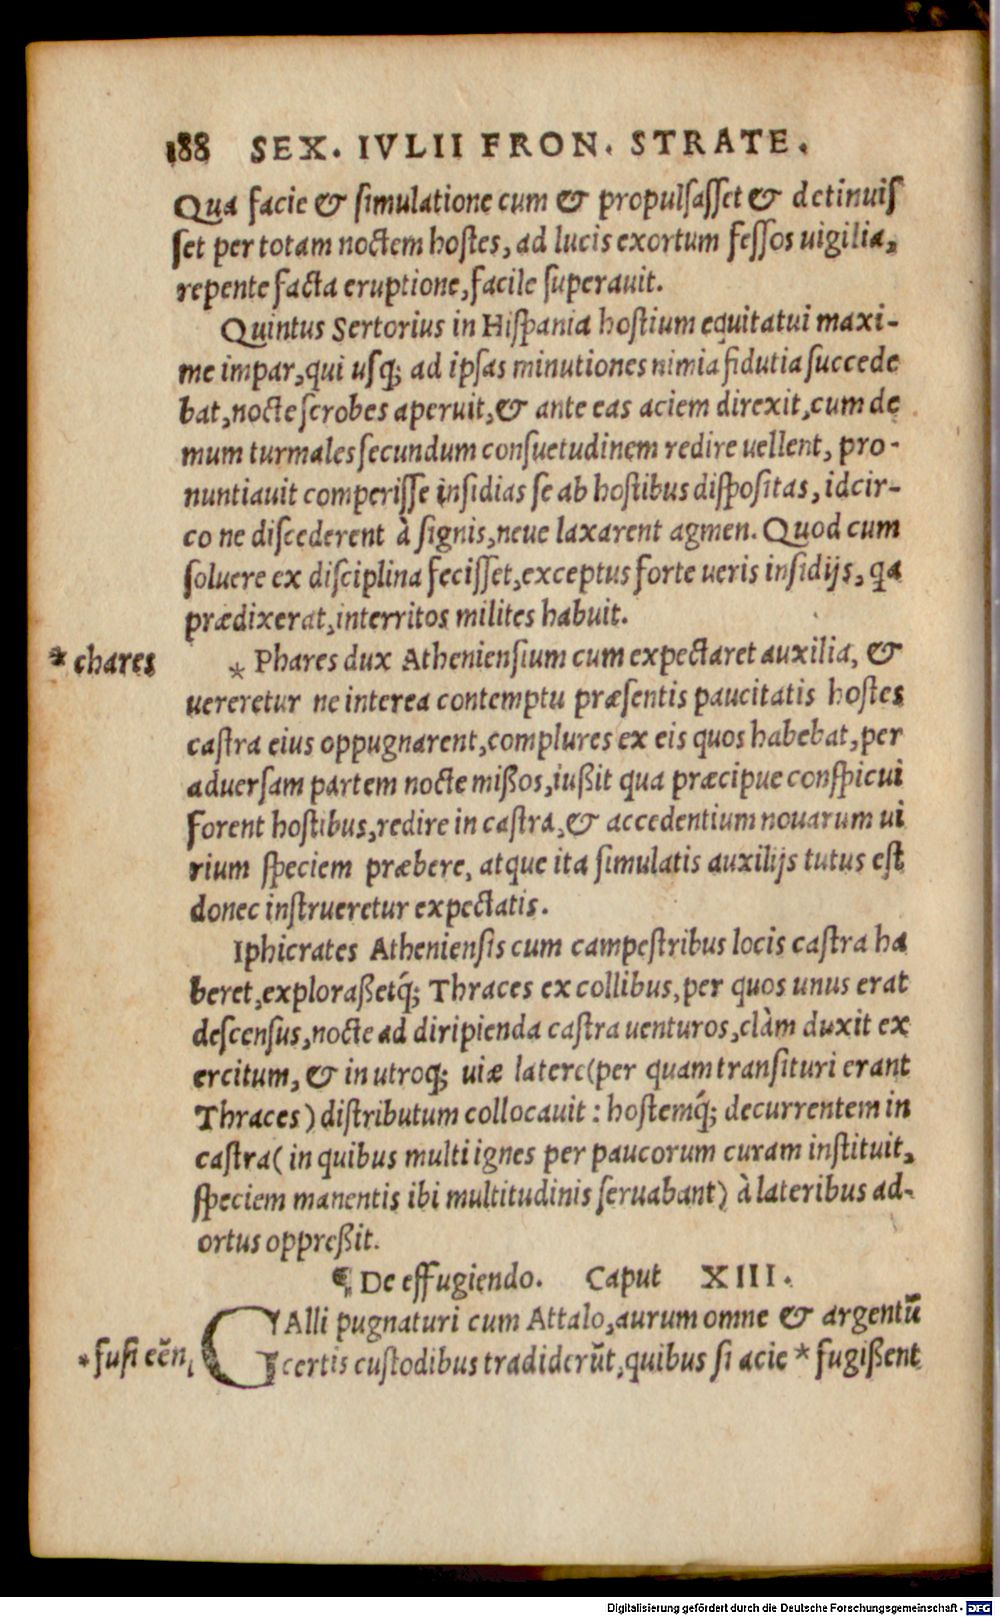 188 SEX. IVLII FRON. STRATE.
Qua facie & simulatione cum & propulsasset & detinuis
set per totam noctem hostes, ad lucis exortum fessos uigilia,
repente facta eruptione, facile superauit.
Quintus Sertorius in Hispania hostium equitatui maxi-
me impar, qui usq; ad ipsas minutiones nimia fidutia succede
bat, nocte scrobes aperuit, & ante eas aciem direxit, cum de
mum turmales secundum consuetudinem redire uellent, pro-
nuntiauit comperisse insidias se ab hostibus dispositas, idcir-
co ne discederent à signis, neue laxarent agmen. Quod cum
soluere ex disciplina fecisset, exceptus forte ueris insidijs, qa
prædixerat, interritos milites habuit.
* chares
* Phares dux Atheniensium cum expectaret auxilia, &
uereretur ne interea contemptu præsentis paucitatis hostes
castra eius oppugnarent, complures ex eis quos habebat, per
aduersam partem nocte mißos, iußit qua præcipue conspicui
forent hostibus, redire in castra, & accedentium nouarum ui
rium speciem præbere, atque ita simulatis auxilijs tutus est
donec instrueretur expectatis.
Iphicrates Atheniensis cum campestribus locis castra ha
beret, exploraßetq́; Thraces ex collibus, per quos unus erat
descensus, nocte ad diripienda castra uenturos, clàm duxit ex
ercitum, & in utroq; uiæ latere (per quam transituri erant
Thraces) distributum collocauit: hostemq́; decurrentem in
castra (in quibus multi ignes per paucorum curam instituit,
speciem manentis ibi multitudinis seruabant) à lateribus ad-
ortus oppreßit.
¶ De effugiendo. Caput XIII.
GAlli pugnaturi cum Attalo, aurum omne & argentū
* fusi eēn,
certis custodibus tradiderūt, quibus si acie * fugißent
Digitalisierung gefördert durch die Deutsche Forschungsgemeinschaft - DFG